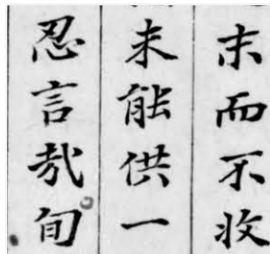 末而不收
未能供一
忍言哉旬